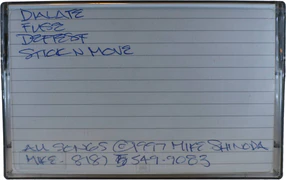 DIALATE
FUSE
DEFTEST
STICK N MOVE
ALL SONGS © 1997 MIKE SHINODA
MIKE - 8187 549-9083